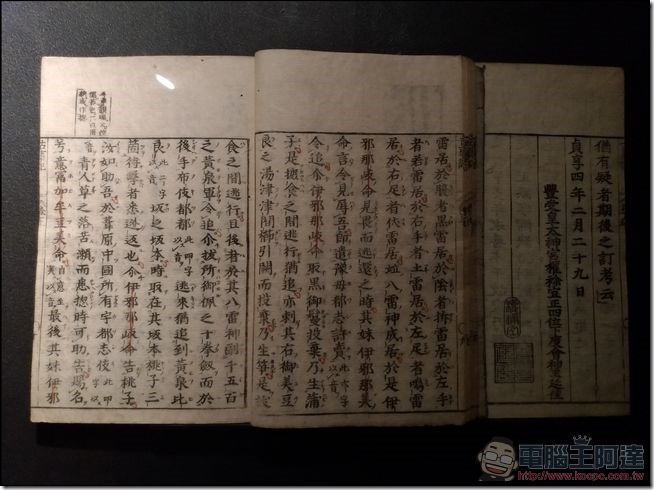 猶有疑者期後之訂考云
貞享四年二月二十九日
豐受皇太神宮權祢宜正四位下度會神主延佳
雷居於腹者黑雷居於陰者拆雷居於左手
者若雷居於右手者土雷居於左足者鳴雷
居於右足者伏雷居竝八雷神成居於是伊
邪那岐命見畏而逃還之時其妹伊邪那美
命言令見辱吾即遣豫母都志許賣此六字以音
令追尒伊邪那岐命取黑御鬘投棄乃生蒲
子是摭食之間逃行猶追亦刺其右御美豆
良之湯津津間櫛引闕而投棄乃生笋是拔
食之間逃行且後者於其八雷神副千五百
之黃泉軍令追尒拔所御佩之十拳劔而於
後手布伎都都此四字以音逃來猶追到黃泉比
良此二字以音坂之坂本時取在其坂本桃子三
箇待擊者悉逃返也尒伊邪那岐命告桃子
汝如助吾於葦原中國所有宇都志伎此四字以音
青人草之落苦瀬而患惚時可助告賜名
号意富加牟豆美命自意至美以音最後其妹伊邪
電腦王阿達
http://www.kocpc.com.tw